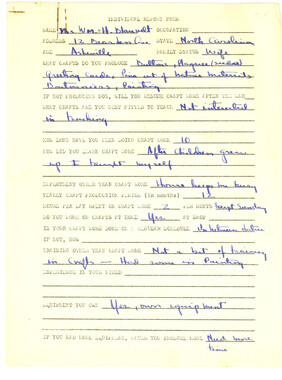 INDIVIDUAL REPORT FORM
NAME Mrs Wm. H. Blauvelt OCCUPATION
ADDRESS 12 Dearborn Ave STATE North Carolina
FOR Asheville FAMILY STATUS Wife
WHAT CRAFTS DO YOU PRODUCE
Greeting Cards, Pins out of Nature Materials
Boutonnieres, Painting
IF NOT PRODUCING NOW, WILL YOU RESUME CRAFT WORK AFTER THE WAR
WHAT CRAFTS ARE YOU BEST FITTED TO TEACH Not interested
in teaching
HOW LONG HAVE YOU BEEN DOING CRAFT WORK 10
HOW DID YOU LEARN CRAFT WORK After Children grew
up taught myself
EMPLOYMENT OTHER THAN CRAFT WORK House keeps me busy
YEARLY CRAFT PRODUCTION PERIOD (in months) 12
HOURS PER DAY SPENT ON CRAFT WORK 2 PER MONTH Except Sunday
DO YOU WORK ON CRAFTS AT HOME Yes AT SHOP
IS YOUR CRAFT WORK DONE ON A REGULAR SCHEDULE
IF NOT, HOW
TRAINING OTHER THAN CRAFT WORK Not a bit of training
in Crafts - Had some in Painting
EXPERIENCE IN YOUR FIELD
EQUIPMENT YOU OWN Yes, own equipment
IF YOU HAD MORE EQUIPMENT, COULD YOU PRODUCE MORE Need more
time